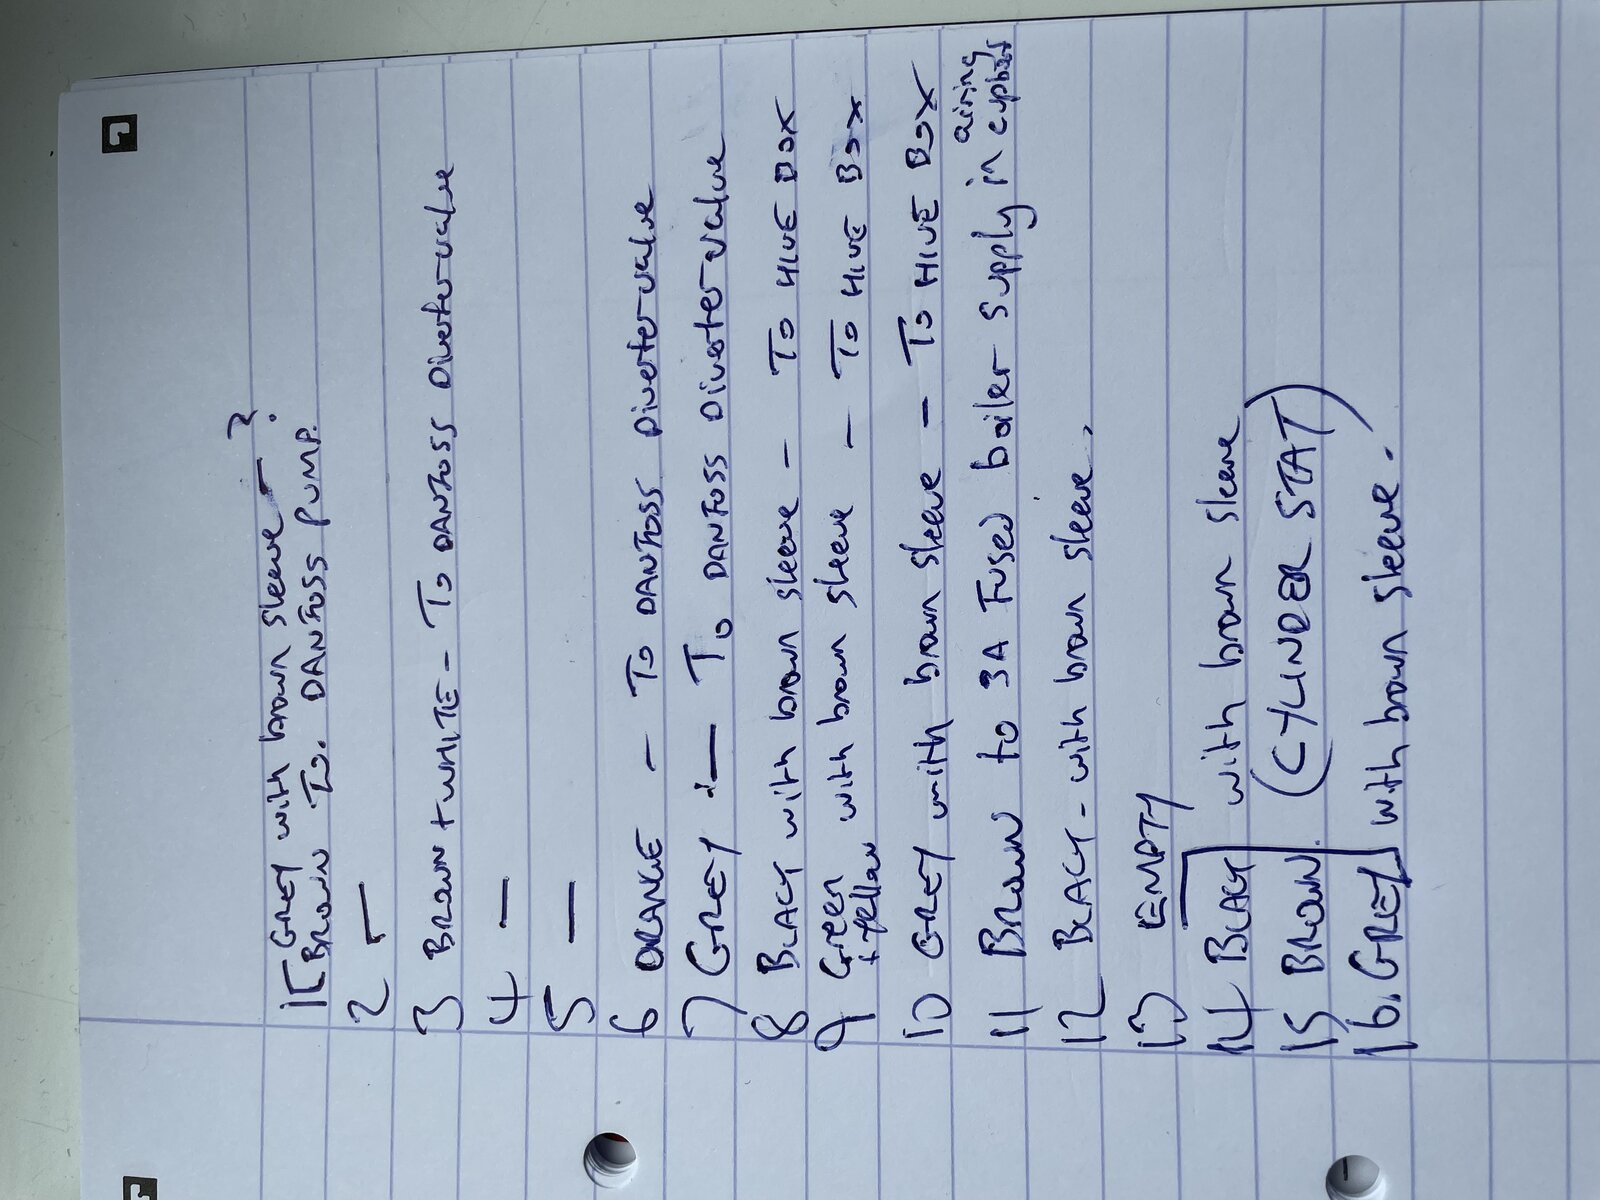 1 [ GREY with brown sleeve - ?
BROWN To. DANFOSS PUMP.
2 -
3 BROWN + WHITE - TO DANFOSS Divertervalve
4 -
5 -
6 ORANGE - TO DANFOSS Divertervalve
7 GREY - TO DANFOSS Divertervalve
8 BLACK with brown sleeve - TO HIVE BOX
9 Green + yellow with brown sleeve - TO HIVE BOX
10 GREY with brown sleeve - TO HIVE BOX
11 BROWN to 3A Fused boiler supply in airing cupboard
12 BLACK - with brown sleeve.
13 EMPTY
14 BLACK with brown sleeve
15 BROWN. (CYLINDER STAT)
16. GREY with brown sleeve.